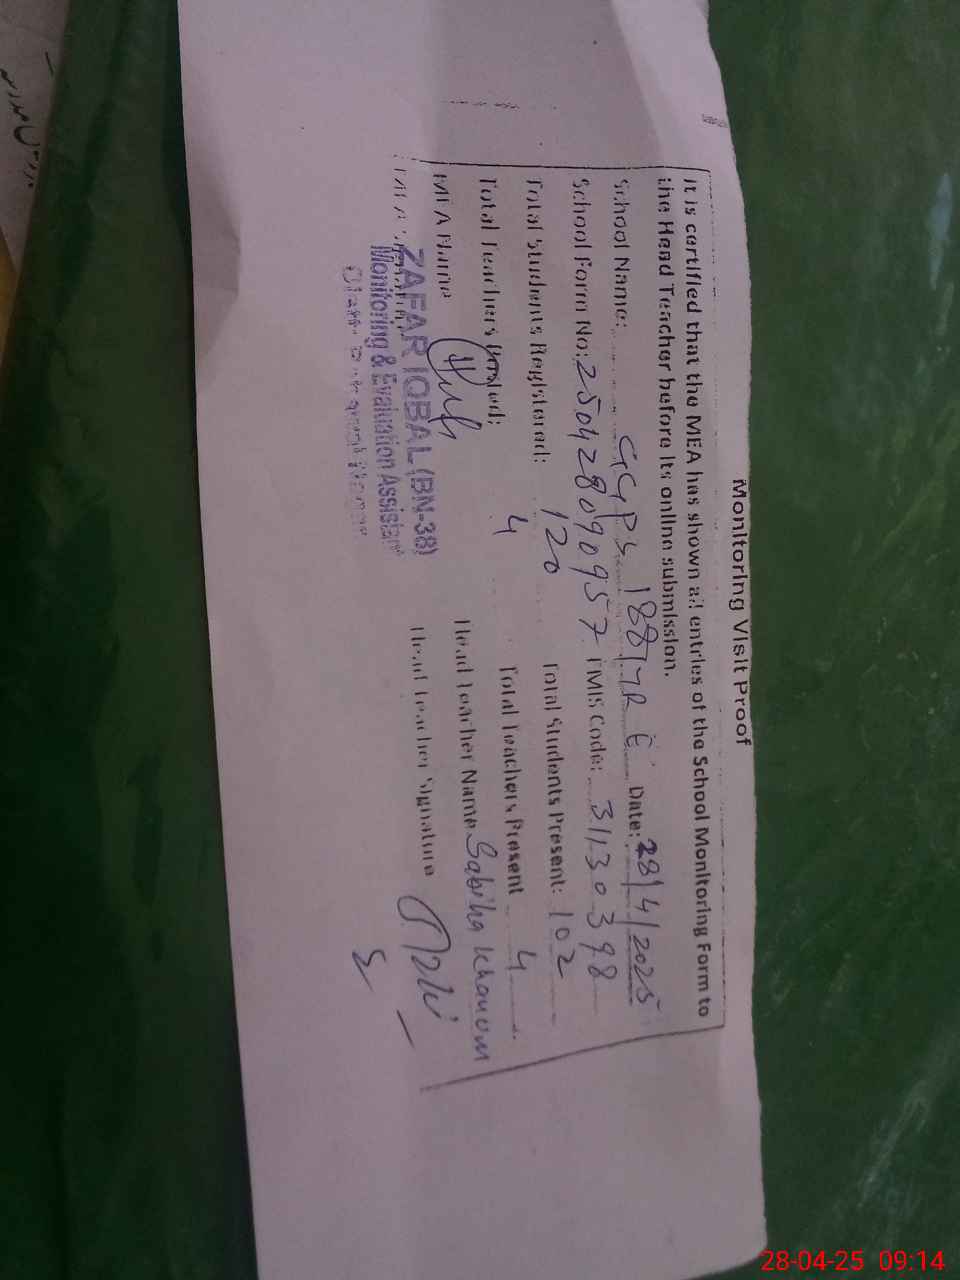 Monitoring Visit Proof
It is certified that the MEA has shown all entries of the School Monitoring Form to
the Head Teacher before its online submission.
School Name: GGPS 188/7R E Date: 28/4/2025
School Form No: 250428090957 EMIS Code: 31130398
Total Students Registered: 120 Total Students Present: 102
Total Teachers Posted: 4 Total Teachers Present 4
MEA Name Head Teacher Name Sabiha Khanom
Head Teacher Signature
ZAFAR IQBAL (BN-38)
Monitoring & Evaluation Assistant
28-04-25 09:14